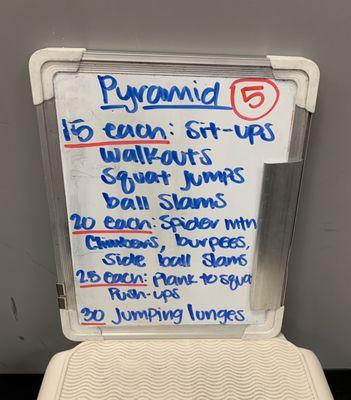 Pyramid 5
15 each: Sit-ups
Walkouts
Squat Jumps
ball Slams
20 each: Spider mtn
Climbers, burpees,
Side ball Slams
25 each: Plank to squa
Push-ups
30 Jumping lunges